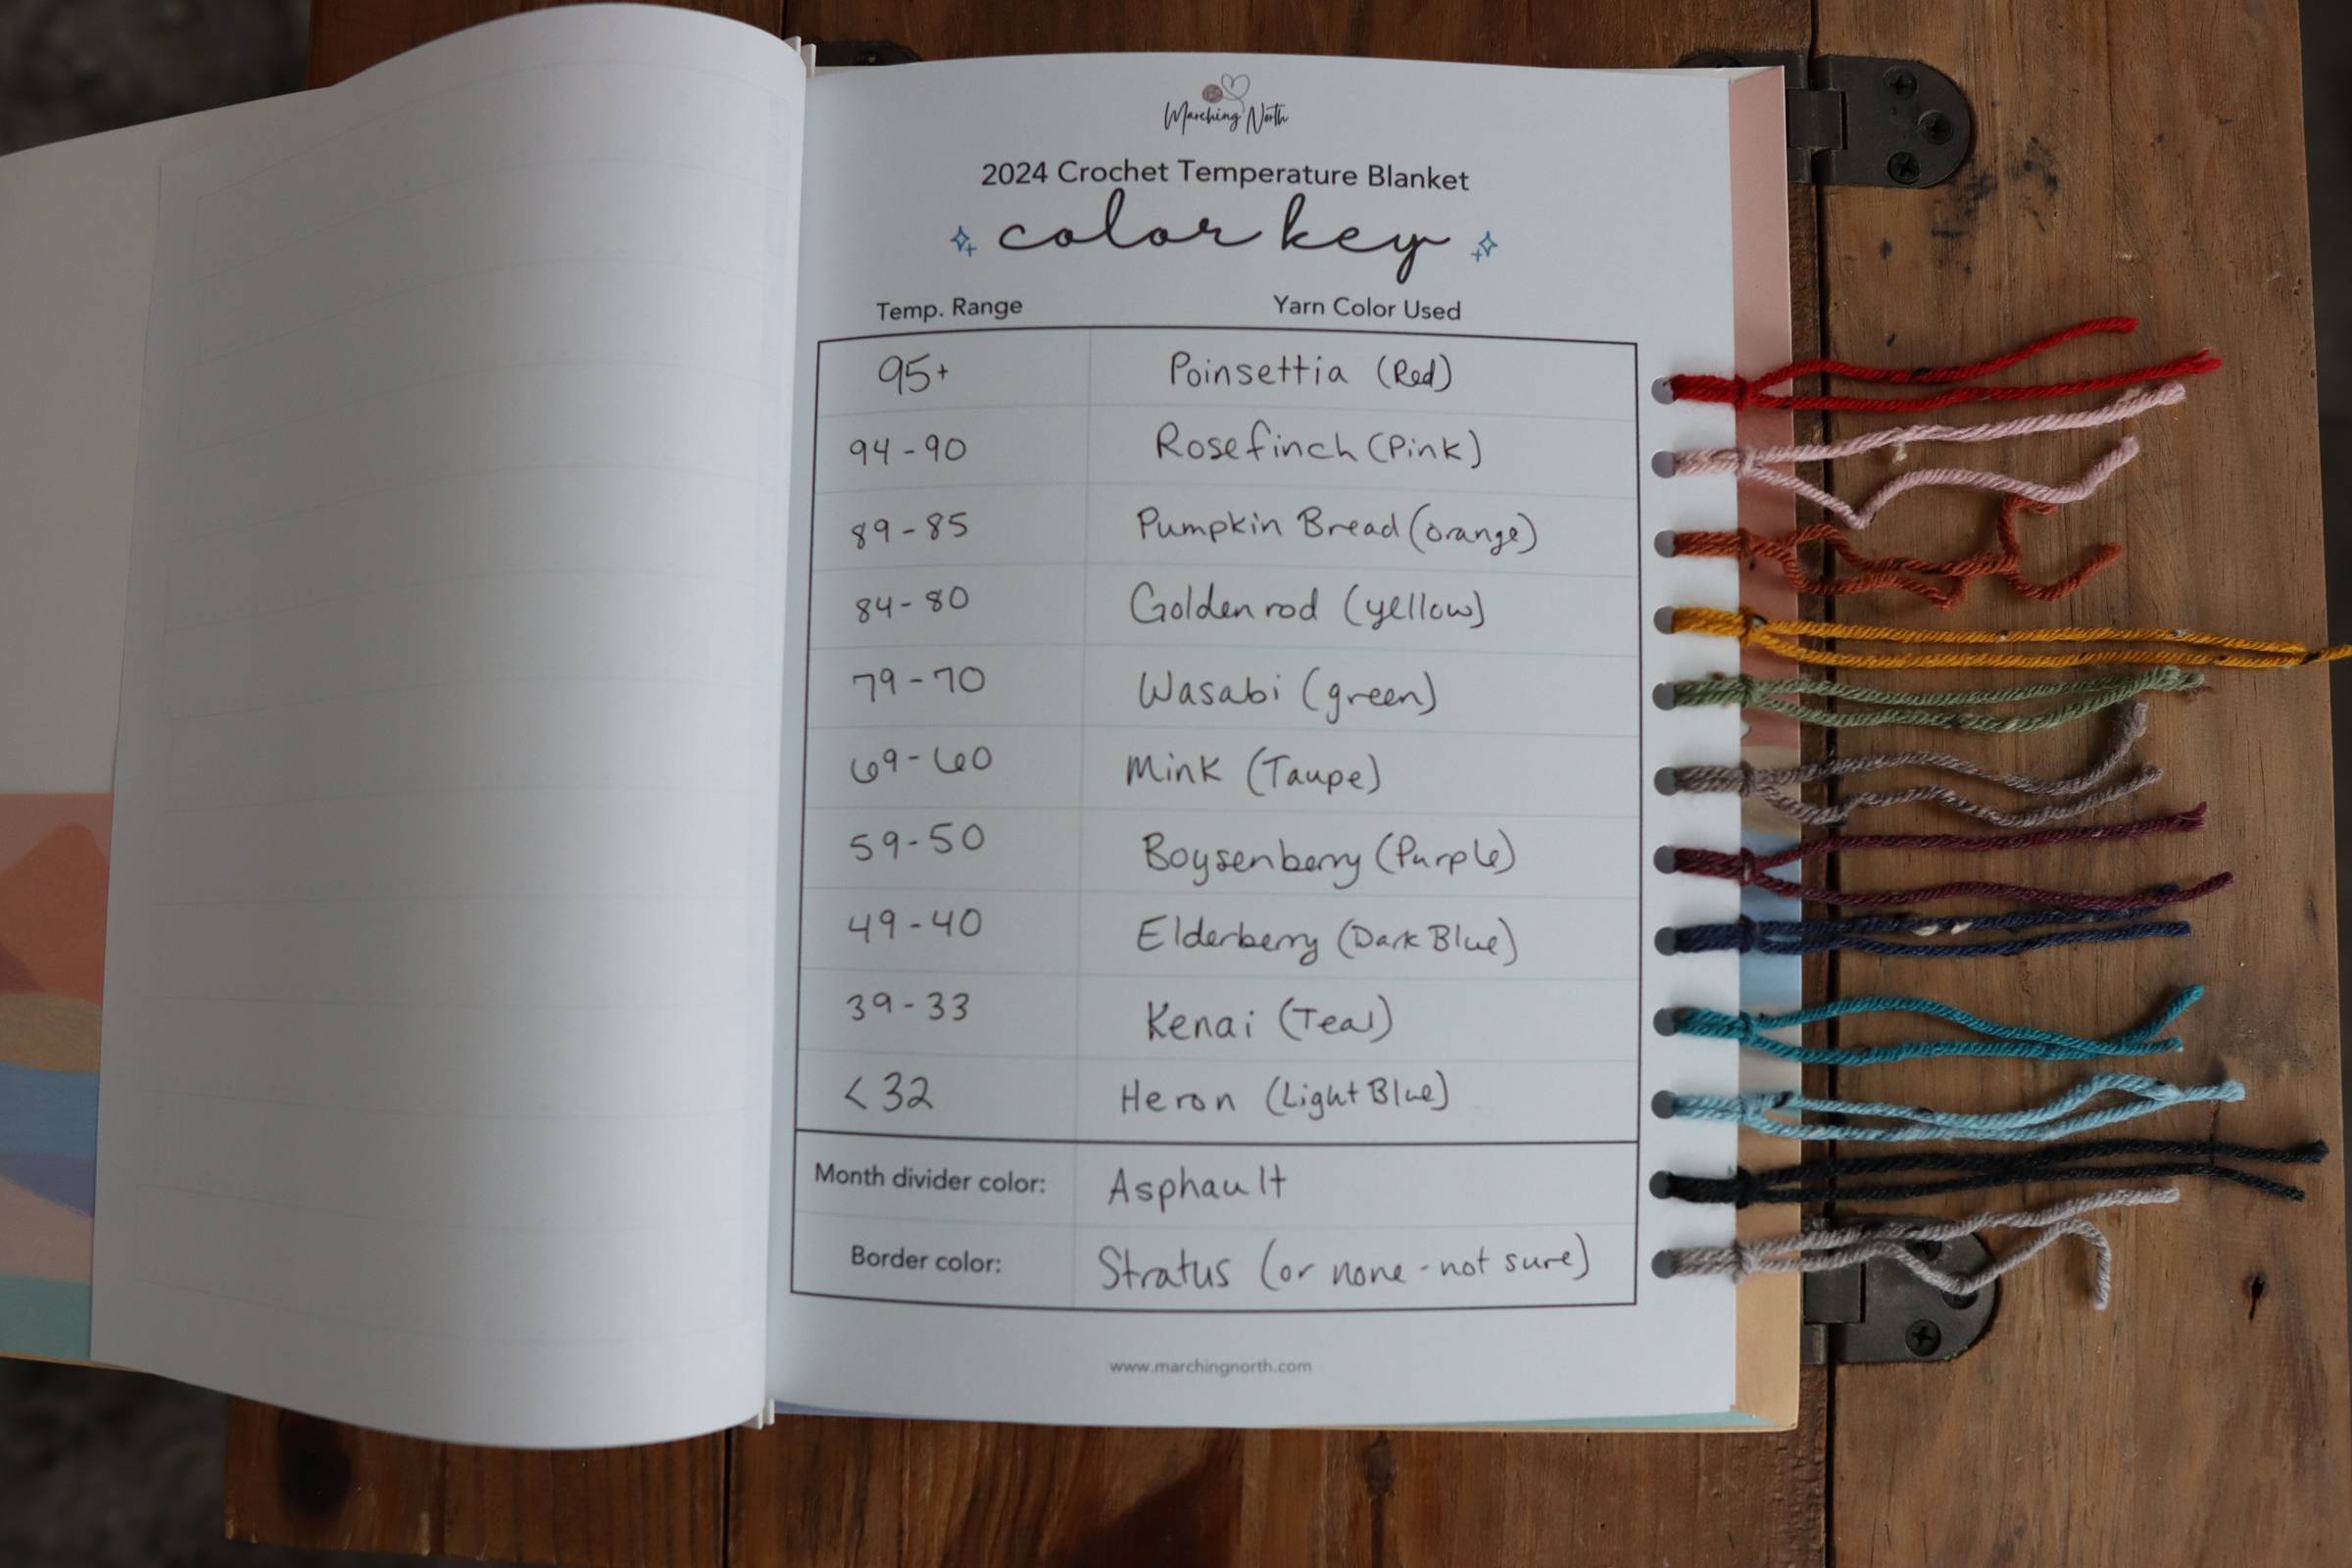 Marching North
2024 Crochet Temperature Blanket
color key
Temp. Range Yarn Color Used
95+ Poinsettia (Red)
94-90 Rosefinch (Pink)
89-85 Pumpkin Bread (orange)
84-80 Goldenrod (yellow)
79-70 Wasabi (green)
69-60 Mink (Taupe)
59-50 Boysenberry (Purple)
49-40 Elderberry (Dark Blue)
39-33 Kenai (Teal)
<32 Heron (Light Blue)
Month divider color: Asphault
Border color: Stratus (or none - not sure)
www.marchingnorth.com